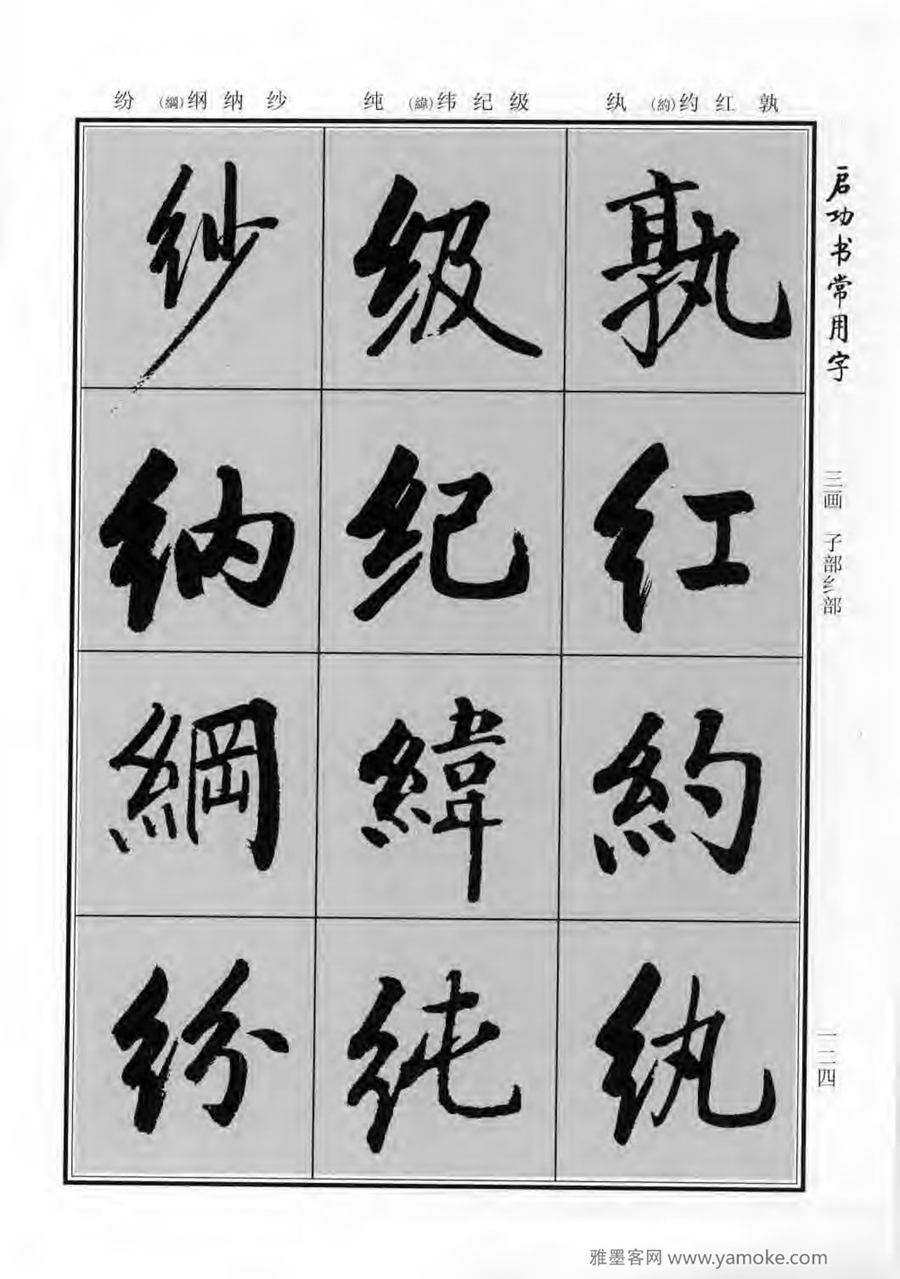 孰红约(約)纨
级纪纬(緯)纯
纱纳纲(綱)纷
孰
红
約
纨
级
纪
緯
纯
纱
纳
綱
纷
启功书常用字
三画 子部纟部
一二四
雅墨客网 www.yamoke.com